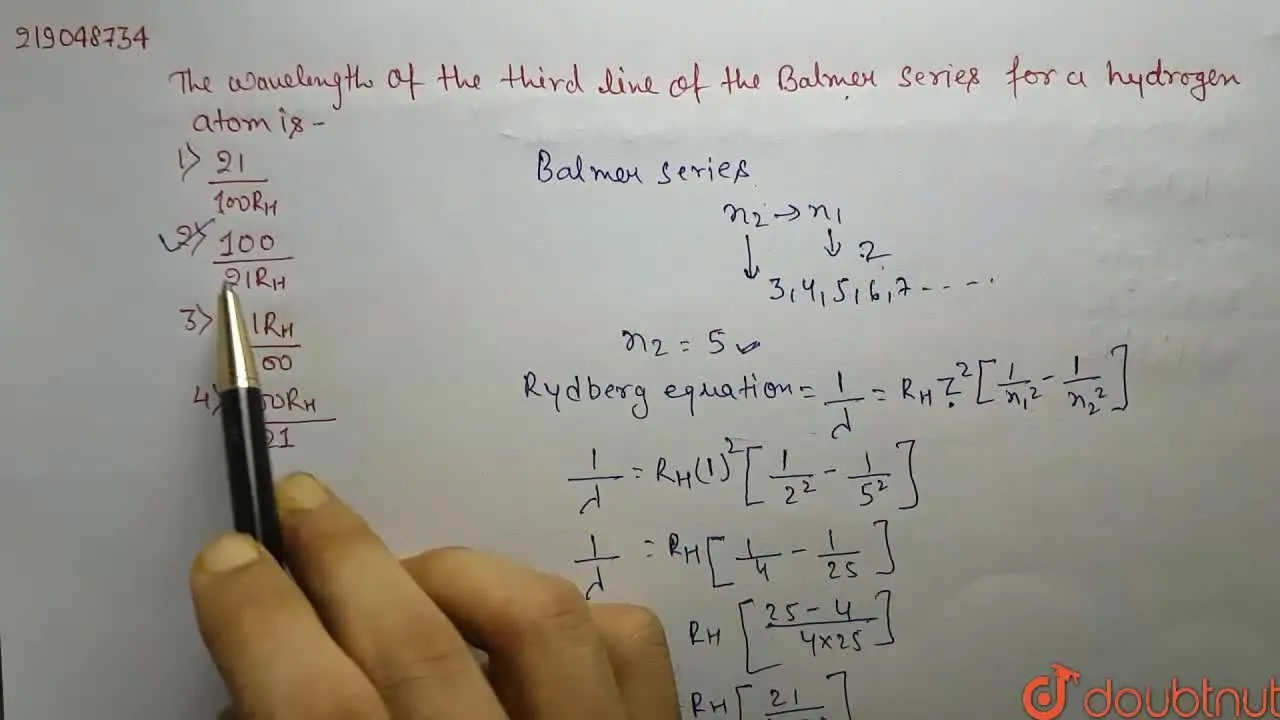 219048734
The wavelength of the third line of the Balmer series for a hydrogen
atom is -
1) 21
100RH
2) 100
21RH
3) 1RH
00
4) 00RH
21
Balmer series
n2 → n1
2
3, 4, 5, 6, 7 - - - -
n2 = 5
Rydberg equation = 1/λ = RH Z² [1/n1² - 1/n2²]
1/λ = RH (1)² [1/2² - 1/5²]
1/λ = RH [1/4 - 1/25]
RH [25 - 4 / 4×25]
RH [21
doubtnut